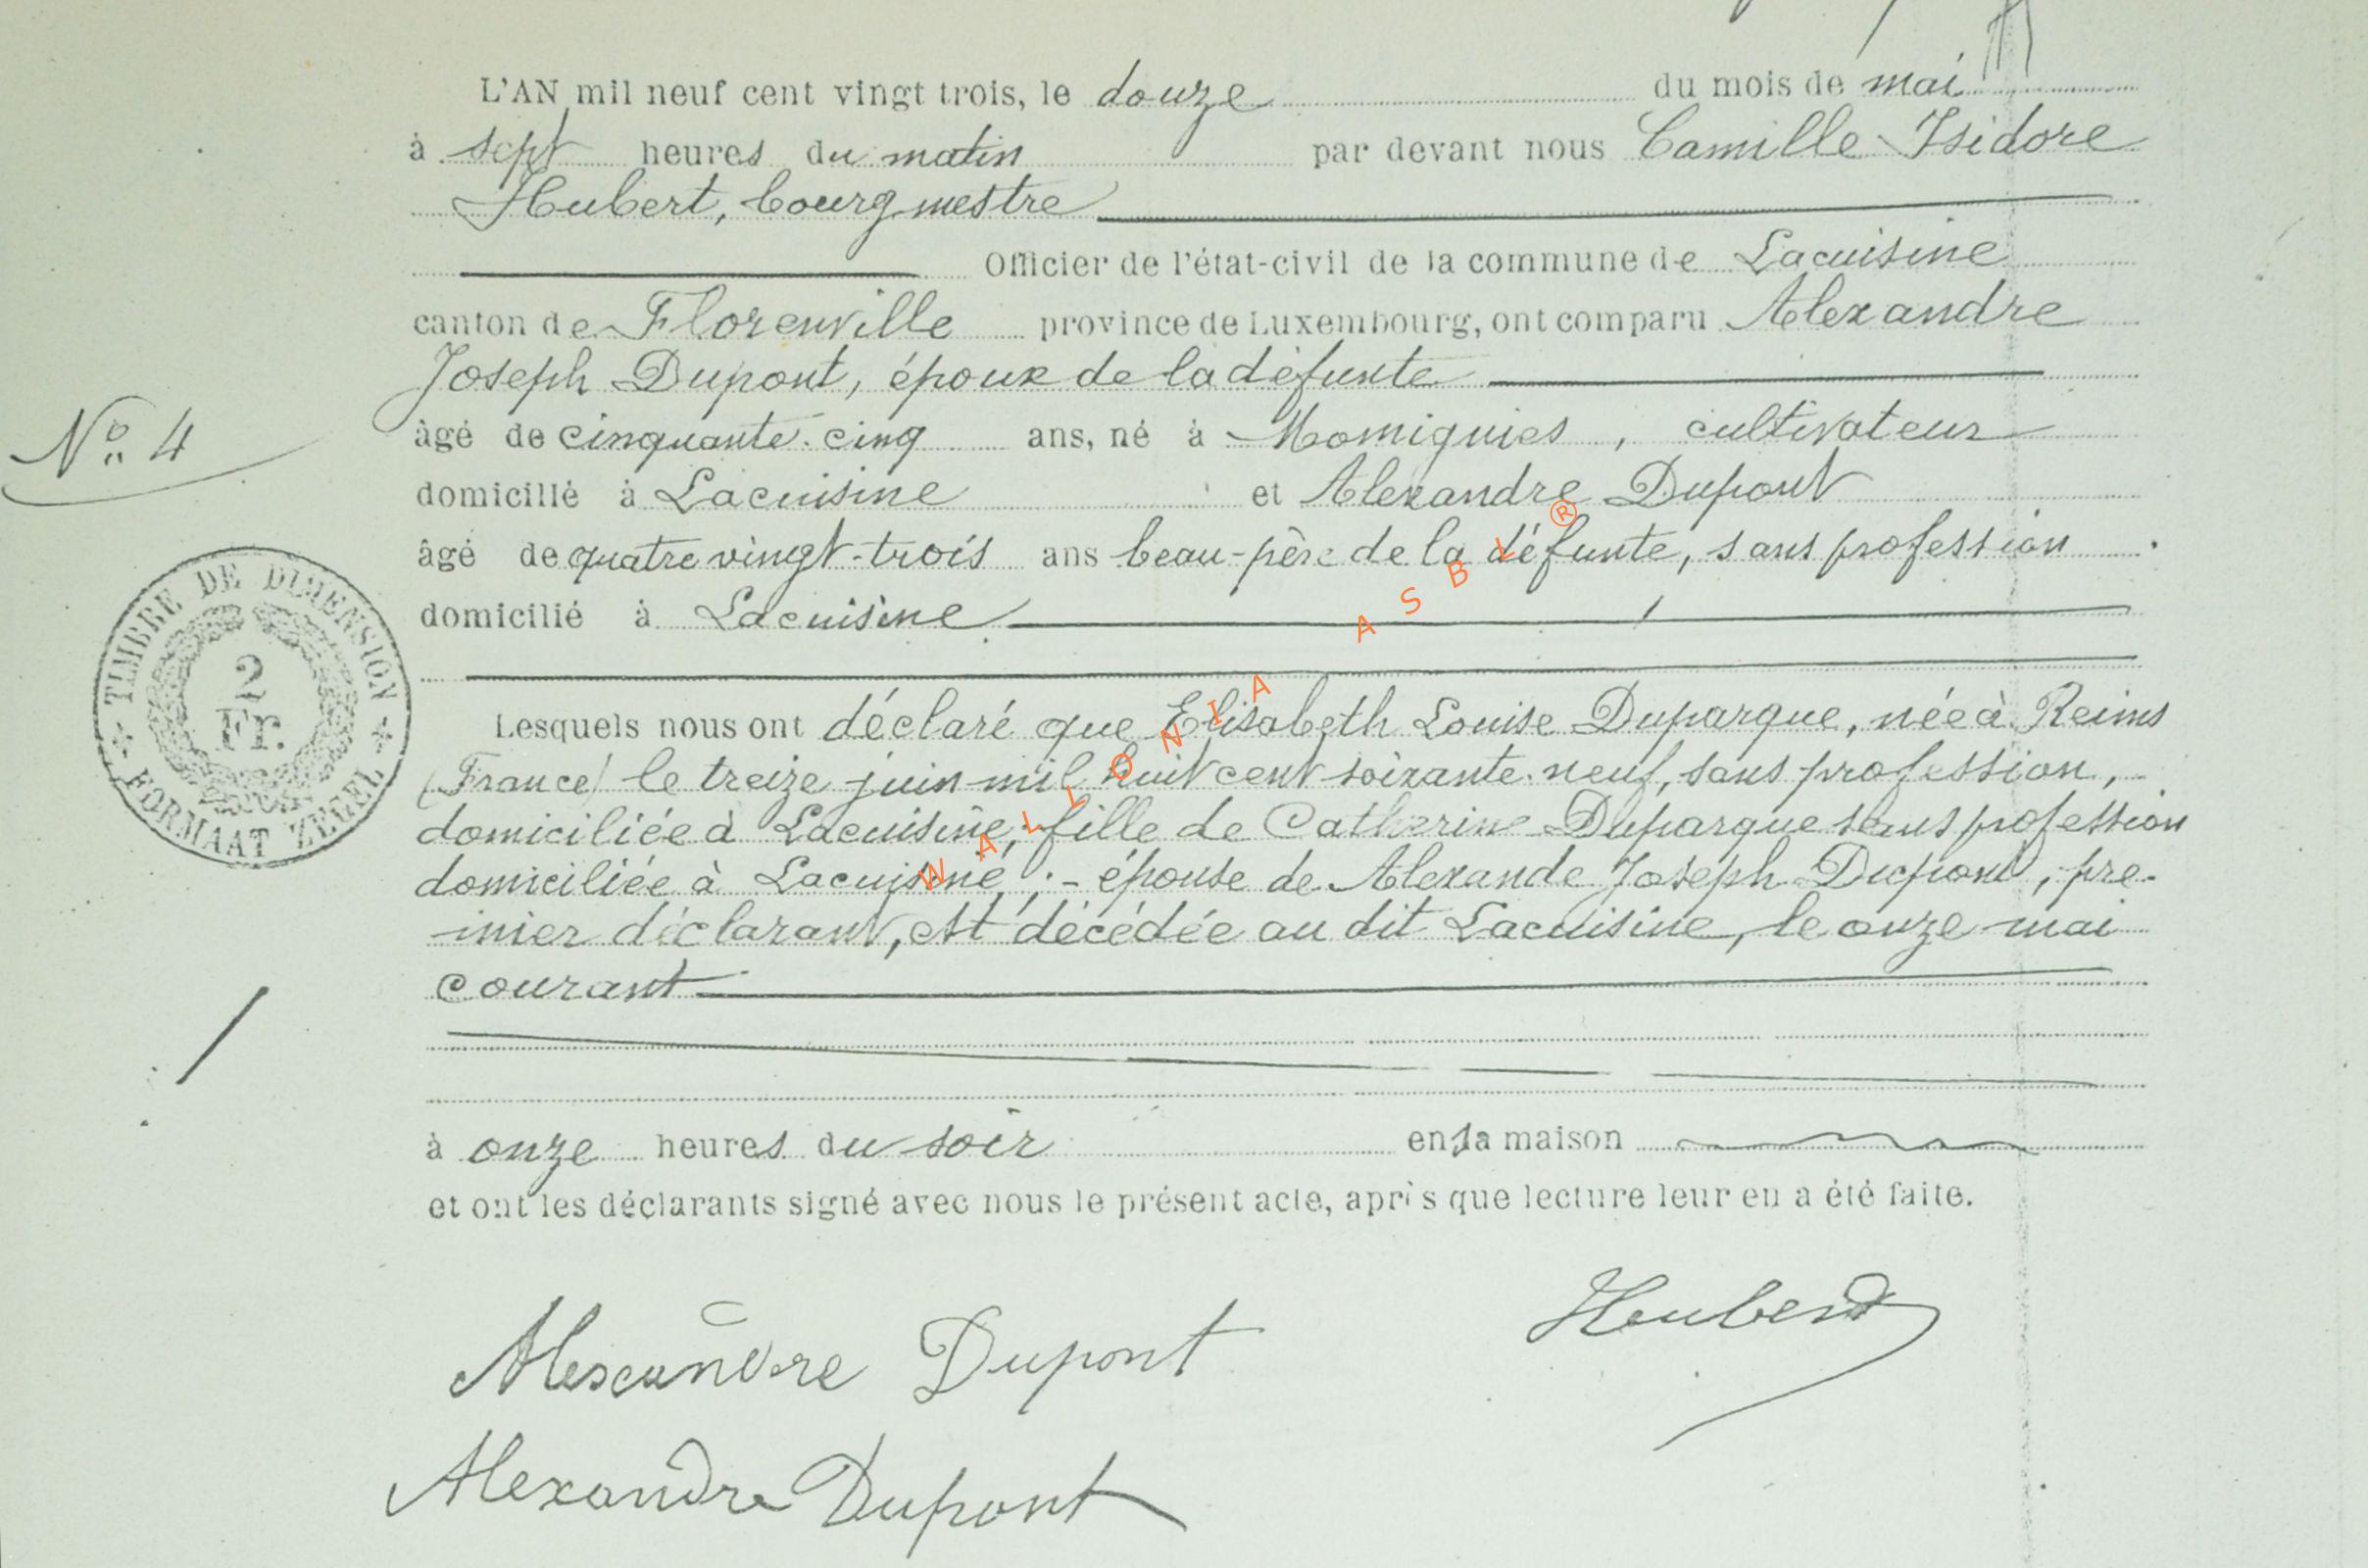 L'AN mil neuf cent vingt trois, le douze du mois de mai
à sept heures du matin par devant nous Camille Isidore
Hubert, bourgmestre
Officier de l'état-civil de la commune de Lacuisine
canton de Florenville province de Luxembourg, ont comparu Alexandre
Joseph Dupont, époux de la défunte
âgé de cinquante-cinq ans, né à Momignies, cultivateur
N° 4
domicilié à Lacuisine et Alexandre Dupont
âgé de quatre vingt-trois ans beau-père de la défunte, sans profession
domicilié à Lacuisine
TIMBRE DE DIMENSION
2
Fr.
FORMAAT ZEGEL
Lesquels nous ont déclaré que Elisabeth Louise Duparque, née à Reims
(France) le treize juin mil huit cent soixante-neuf, sans profession,
domiciliée à Lacuisine, fille de Catherine Duparque sans profession
domiciliée à Lacuisine ; - épouse de Alexande Joseph Dupont, pre-
mier déclarant, est décédée au dit Lacuisine, le onze mai
courant
à onze heures du soir en sa maison
et ont les déclarants signé avec nous le présent acte, après que lecture leur en a été faite.
Hubert
Alexandre Dupont
Alexandre Dupont
WALLONIA ASBL®